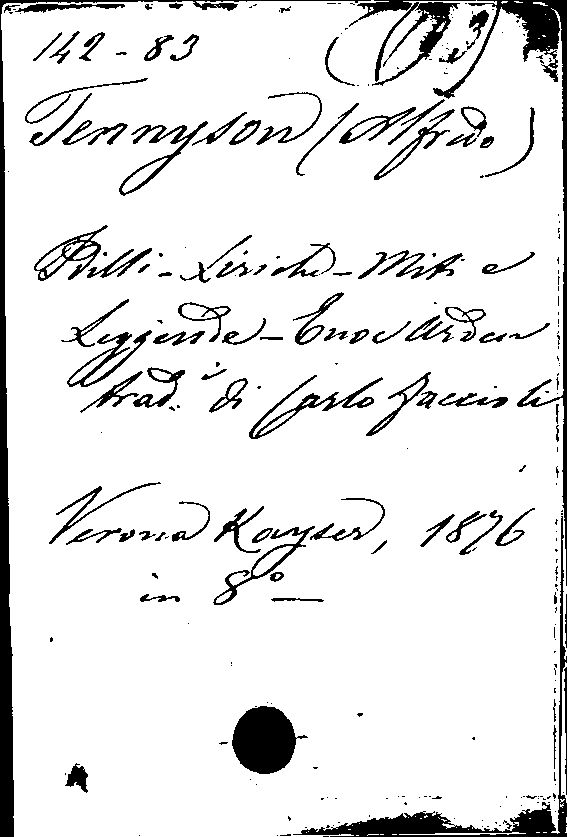 142-83
Tennyson (Alfredo)
Idilli - Liriche - Miti e
Leggende - Enoc Arden
trad.i di Carlo Faccioli
Verona Kayser, 1876
in 8°